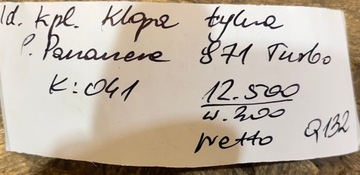 kpl. Klapa tylna
P. Panamera 971 Turbo
K: 041 12.500
netto Q132